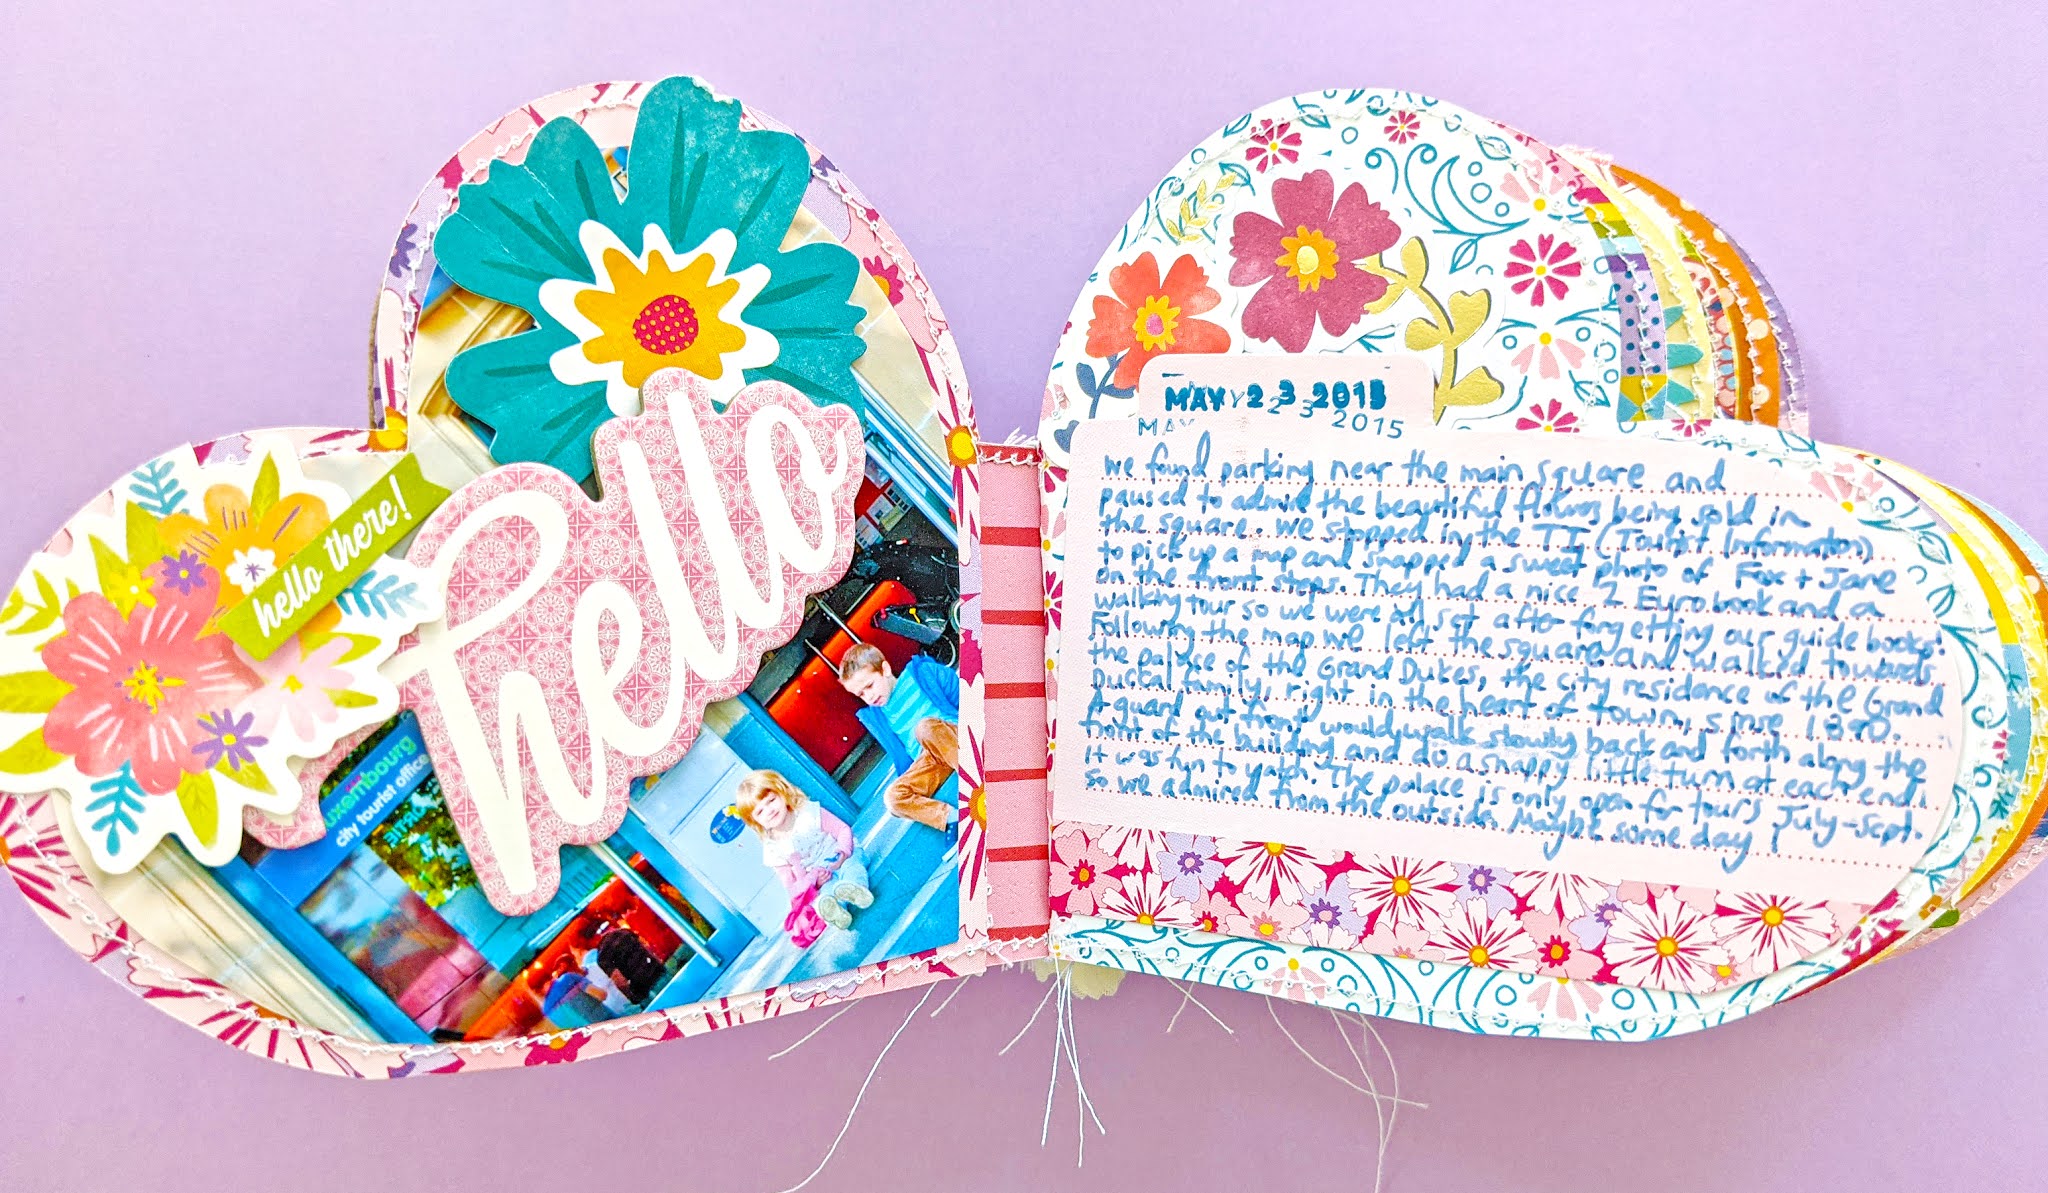 hello there!
hello
luxembourg
city tourist office
MAY 23 2015
MAY 23 2015
we found parking near the main square and
paused to admire the beautiful flowers being sold in
the square. We stopped in the TI (Tourist Information)
to pick up a map and snapped a sweet photo of Fox + Jane
on the front steps. They had a nice 2 Euro book and a
walking tour so we were all set after forgetting our guide books!
Following the map we left the square and walked towards
the palace of the Grand Dukes, the city residence of the Grand
Ducal family, right in the heart of town, sinse 1890.
A guard out front would walk slowly back and forth along the
front of the building and do a snappy little turn at each end.
It was fun to watch. The palace is only open for tours July-Sept.
so we admired from the outside. Maybe some day!